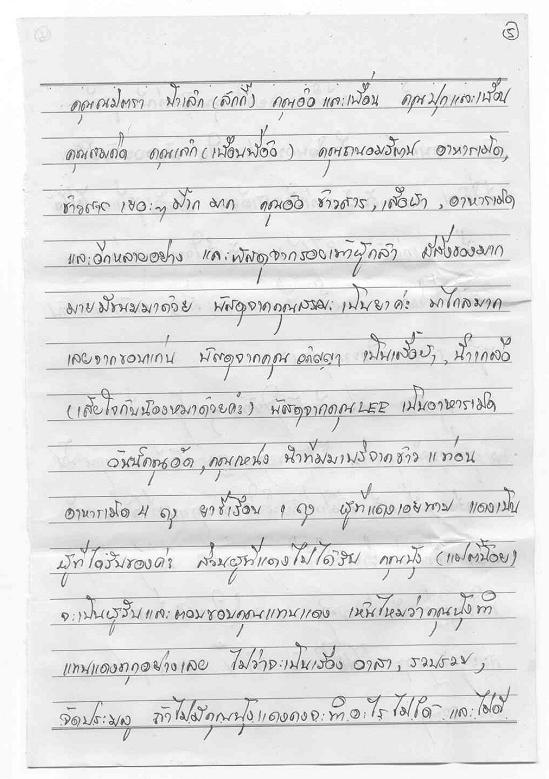 5
คุณณมิตรา น้าเล็ก (ลักกี้) คุณอ้อ และเพื่อน คุณปุกและเพื่อน
คุณสมคิด คุณเล็ก (เพื่อนพี่อ้อ) คุณถนอมรัตน์ อาหารเม็ด,
ข้าวสาร เยอะๆ มาก มาก คุณอ้อ ข้าวสาร, เสื้อผ้า, อาหารเม็ด
และอีกหลายอย่าง และพัสดุจากรอยเท้าผู้กล้า มีสิ่งของมาก
มายมีขนมมาด้วย พัสดุจากคุณธรรมะ เป็นยาค่ะ มาไกลมาก
เลยจากขอนแก่น พัสดุจากคุณ อภิญญา เป็นเสื้อผ้า, น้ำเกลือ
(เสียใจกับน้องหมาด้วยค่ะ) พัสดุจากคุณ LEE เป็นอาหารเม็ด
วันนี้คุณอ๊อด, คุณหน่ง นำทีมมาบริจาคข้าว แท่อน
อาหารเม็ด 4 ถุง ยาขี้เรื้อน 1 ถุง ผู้ที่แดงเอยนาม แดงเป็น
ผู้ที่ได้รับของค่ะ ส่วนผู้ที่แดงไม่ได้รับ คุณปุ้ง (แม่ตาน้อย)
จะเป็นผู้รับและตอบขอบคุณแทนแดง เห็นไหมว่าคุณปุ้งทำ
แทนแดงทุกอย่างเลย ไม่ว่าจะเป็นเรื่อง อาสา, รวบรวม,
จัดประมูล ถ้าไม่มีคุณปุ้งแดงคงจะทำอะไรไม่ได้ และไม่มี